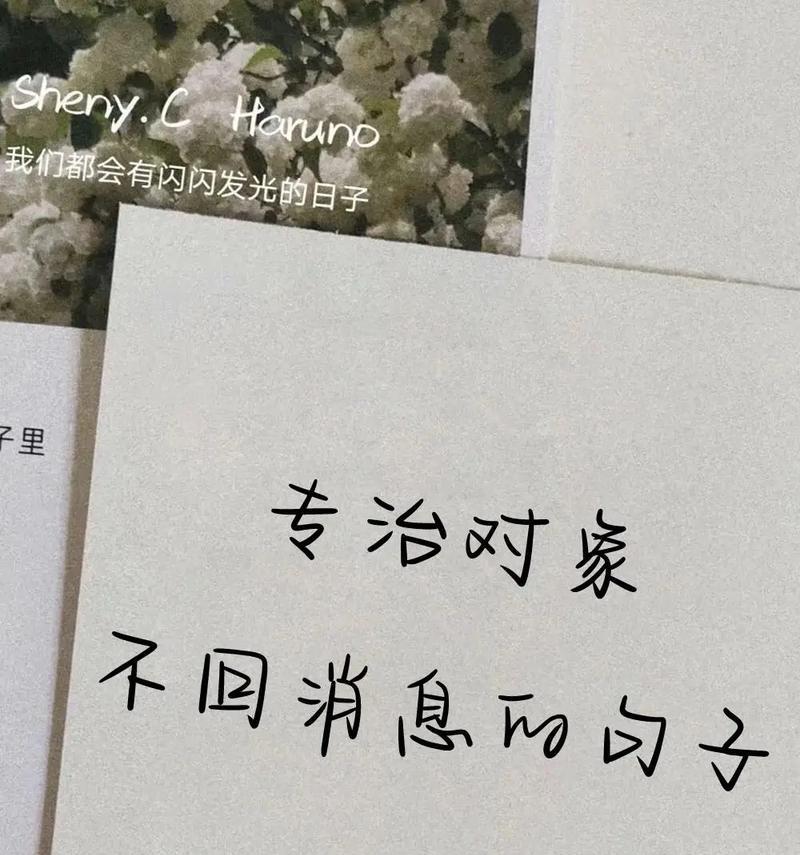 Sheny.C Haruno
我们都会有闪闪发光的日子
子里
专治对象
不回消息的句子